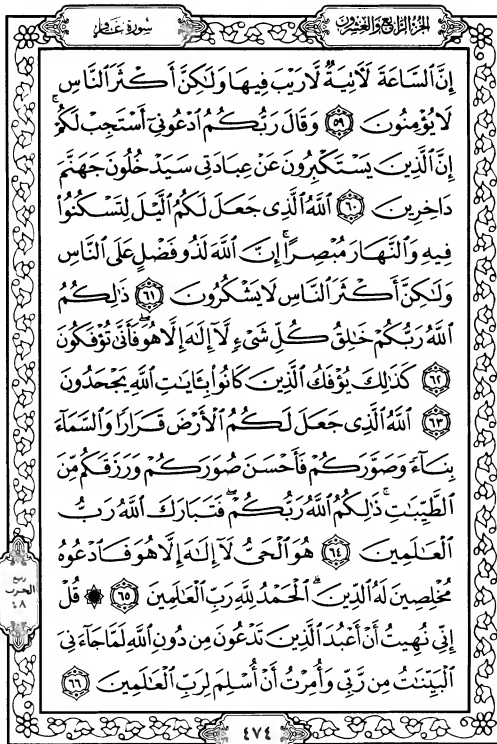 الجزء الرابع والعشرون
سورة غافر
إِنَّ ٱلسَّاعَةَ لَأٓتِيَةٌ لَّا رَيْبَ فِيهَا وَلَٰكِنَّ أَكْثَرَ ٱلنَّاسِ
لَا يُؤْمِنُونَ ٥٩ وَقَالَ رَبُّكُمُ ٱدْعُونِىٓ أَسْتَجِبْ لَكُمْۚ
إِنَّ ٱلَّذِينَ يَسْتَكْبِرُونَ عَنْ عِبَادَتِى سَيَدْخُلُونَ جَهَنَّمَ
دَاخِرِينَ ٦٠ ٱللَّهُ ٱلَّذِى جَعَلَ لَكُمُ ٱلَّيْلَ لِتَسْكُنُوا۟
فِيهِ وَٱلنَّهَارَ مُبْصِرًاۚ إِنَّ ٱللَّهَ لَذُو فَضْلٍ عَلَى ٱلنَّاسِ
وَلَٰكِنَّ أَكْثَرَ ٱلنَّاسِ لَا يَشْكُرُونَ ٦١ ذَٰلِكُمُ
ٱللَّهُ رَبُّكُمْ خَٰلِقُ كُلِّ شَىْءٍ لَّآ إِلَٰهَ إِلَّا هُوَۖ فَأَنَّىٰ تُؤْفَكُونَ
٦٢ كَذَٰلِكَ يُؤْفَكُ ٱلَّذِينَ كَانُوا۟ بِـَٔايَٰتِ ٱللَّهِ يَجْحَدُونَ
٦٣ ٱللَّهُ ٱلَّذِى جَعَلَ لَكُمُ ٱلْأَرْضَ قَرَارًا وَٱلسَّمَآءَ
بِنَآءً وَصَوَّرَكُمْ فَأَحْسَنَ صُوَرَكُمْ وَرَزَقَكُم مِّنَ
ٱلطَّيِّبَٰتِۚ ذَٰلِكُمُ ٱللَّهُ رَبُّكُمْۖ فَتَبَارَكَ ٱللَّهُ رَبُّ
ٱلْعَٰلَمِينَ ٦٤ هُوَ ٱلْحَىُّ لَآ إِلَٰهَ إِلَّا هُوَ فَٱدْعُوهُ
مُخْلِصِينَ لَهُ ٱلدِّينَۗ ٱلْحَمْدُ لِلَّهِ رَبِّ ٱلْعَٰلَمِينَ ٦٥ ۞ قُلْ
إِنِّى نُهِيتُ أَنْ أَعْبُدَ ٱلَّذِينَ تَدْعُونَ مِن دُونِ ٱللَّهِ لَمَّا جَآءَنِىَ
ٱلْبَيِّنَٰتُ مِن رَّبِّى وَأُمِرْتُ أَنْ أُسْلِمَ لِرَبِّ ٱلْعَٰلَمِينَ ٦٦
ربع
الحزب
٤٨
٤٧٤